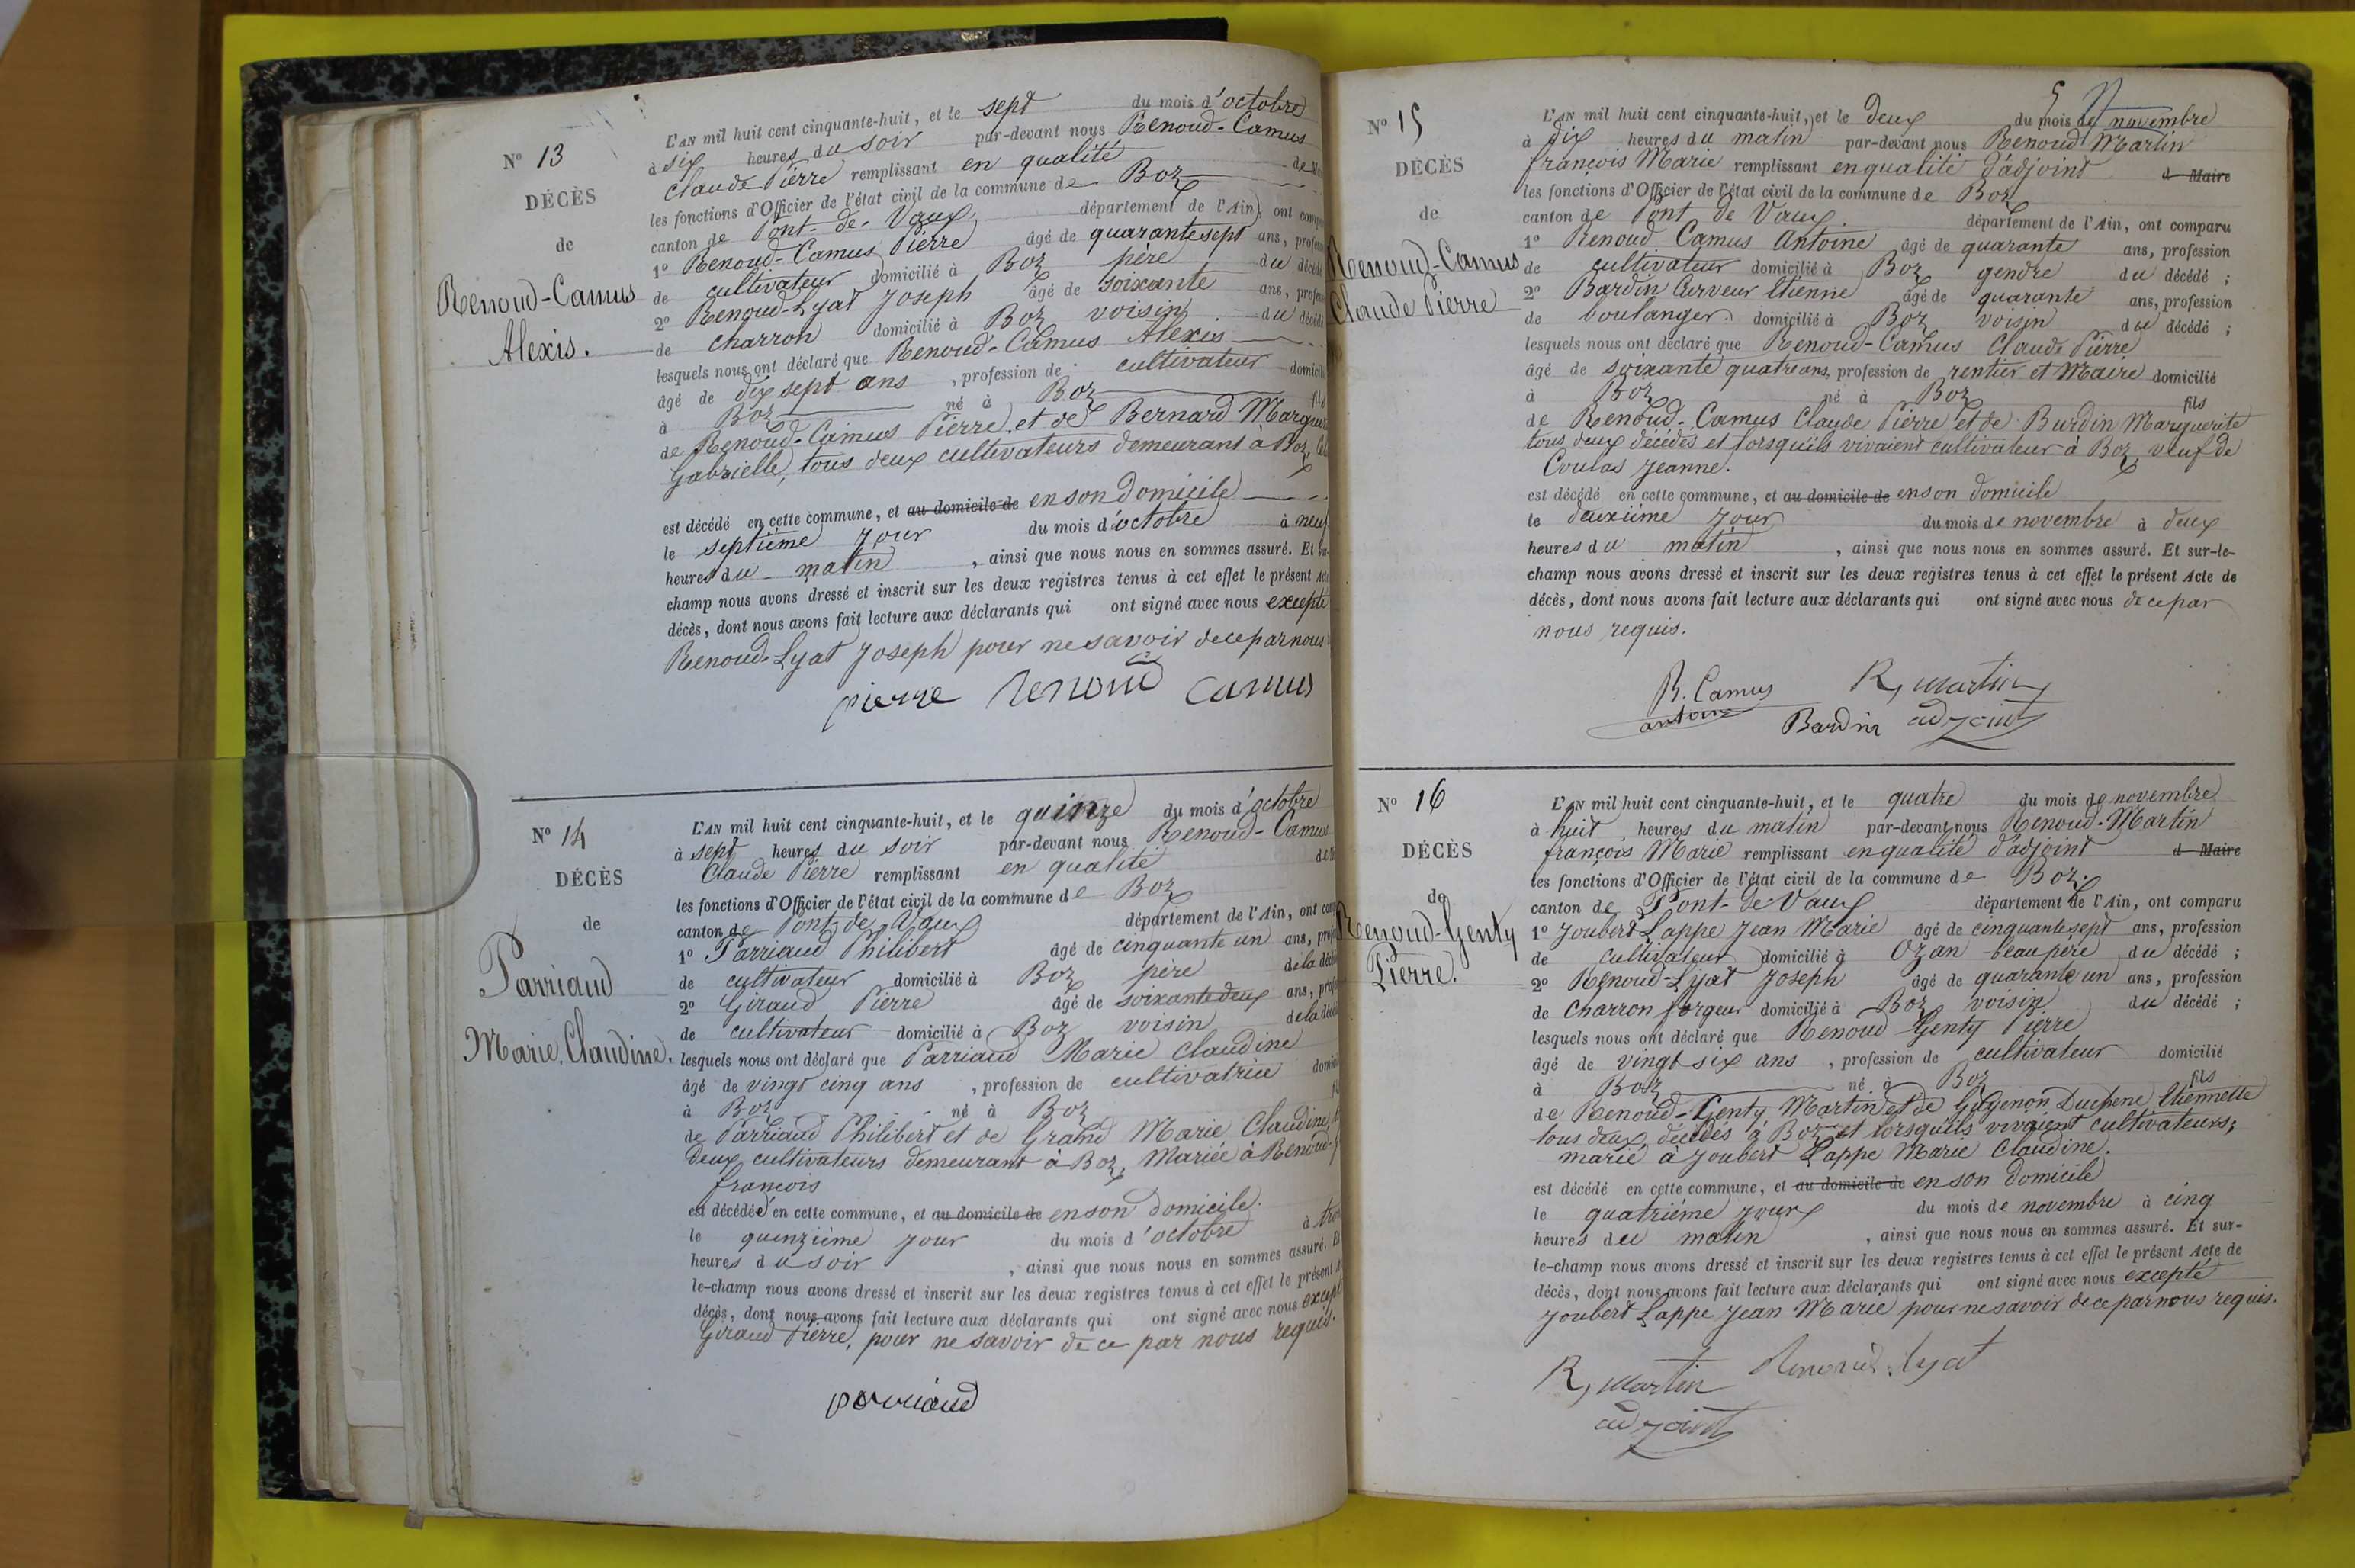 N° 13
DÉCÈS
de
Renoud-Camus
Alexis.
L'AN mil huit cent cinquante-huit, et le sept du mois d'octobre
à six heures du soir par-devant nous Renoud-Camus
Claude Pierre remplissant en qualité de
les fonctions d'Officier de l'état civil de la commune de Boz
canton de Pont-de-Vaux département de l'Ain, ont
1° Renoud-Camus Pierre âgé de quarante sept ans,
de cultivateur domicilié à Boz père du décédé
2° Renoud-Lyat Joseph âgé de soixante ans,
de charron domicilié à Boz voisin du décédé
lesquels nous ont déclaré que Renoud-Camus Alexis
âgé de dix sept ans, profession de cultivateur
à Boz né à Boz fils
de Renoud-Camus Pierre et de Bernard
Gabrielle, tous deux cultivateurs demeurant à Boz,
est décédé en cette commune, et au domicile de en son domicile
le septième jour du mois d'octobre à neuf
heures du matin, ainsi que nous nous en sommes assuré. Et
champ nous avons dressé et inscrit sur les deux registres tenus à cet effet le présent
décès, dont nous avons fait lecture aux déclarants qui ont signé avec nous excepté
Renoud-Lyat Joseph pour ne savoir de ce par nous
pierre renoud camus
N° 14
DÉCÈS
de
Parriaud
Marie Claudine.
L'AN mil huit cent cinquante-huit, et le quinze du mois d'octobre
à sept heures du soir par-devant nous Renoud-Camus
Claude Pierre remplissant en qualité
les fonctions d'Officier de l'état civil de la commune de Boz
canton de Pont-de-Vaux département de l'Ain, ont
1° Parriaud Philibert âgé de cinquante un ans,
de cultivateur domicilié à Boz père de la
2° Giraud Pierre âgé de soixante deux ans,
de cultivateur domicilié à Boz voisin de la
lesquels nous ont déclaré que Parriaud Marie Claudine
âgé de vingt cinq ans, profession de cultivatrice
à Boz né à Boz
de Parriaud Philibert et de Grand Marie Claudine,
deux cultivateurs demeurant à Boz, Mariée à
françois
est décédée en cette commune, et au domicile de en son domicile.
le quinzième jour du mois d'octobre à
heures du soir, ainsi que nous nous en sommes assuré.
le-champ nous avons dressé et inscrit sur les deux registres tenus à cet effet le présent
décès, dont nous avons fait lecture aux déclarants qui ont signé avec nous
Giraud Pierre, pour ne savoir de ce par nous requis.
parriaud
N° 15
DÉCÈS
de
Renoud-Camus
Claude Pierre
L'AN mil huit cent cinquante-huit, et le deux du mois de novembre
à dix heures du matin par-devant nous Renoud Martin
françois Marie remplissant en qualité d'adjoint d Maire
les fonctions d'Officier de l'état civil de la commune de Boz
canton de Pont de Vaux département de l'Ain, ont comparu
1° Renoud Camus Antoine âgé de quarante ans, profession
de cultivateur domicilié à Boz gendre du décédé ;
2° Bardin Curveur Etienne âgé de quarante ans, profession
de boulanger domicilié à Boz voisin du décédé ;
lesquels nous ont déclaré que Renoud-Camus Claude Pierre
âgé de soixante quatre ans, profession de rentier et Maire domicilié
à Boz né à Boz fils
de Renoud-Camus Claude Pierre et de Burdin Marguerite
tous deux décédés et lorsqu'ils vivaient cultivateur à Boz, veuf de
Coulas Jeanne.
est décédé en cette commune, et au domicile de en son domicile
le deuxième jour du mois de novembre à deux
heures du matin, ainsi que nous nous en sommes assuré. Et sur-le-
champ nous avons dressé et inscrit sur les deux registres tenus à cet effet le présent Acte de
décès, dont nous avons fait lecture aux déclarants qui ont signé avec nous de ce par
nous requis.
R. Camus R, martin
antoine Bardin adjoint
N° 16
DÉCÈS
de
Renoud-Genty
Pierre.
L'AN mil huit cent cinquante-huit, et le quatre du mois de novembre
à huit heures du matin par-devant nous Renoud-Martin
françois Marie remplissant en qualité d'adjoint d Maire
les fonctions d'Officier de l'état civil de la commune de Boz.
canton de Pont-de-Vaux département de l'Ain, ont comparu
1° Joubert Lappe Jean Marie âgé de cinquante sept ans, profession
de cultivateur domicilié à Ozan beau père du décédé ;
2° Renoud-Lyat Joseph âgé de quarante un ans, profession
de charron forgeur domicilié à Boz voisin du décédé ;
lesquels nous ont déclaré que Renoud Genty Pierre
âgé de vingt six ans, profession de cultivateur domicilié
à Boz né à Boz fils
de Renoud-Genty Martin et de Guigenon Duchene Etiennette
tous deux décédés à Boz et lorsqu'ils vivaient cultivateurs;
marié à Joubert Lappe Marie Claudine.
est décédé en cette commune, et au domicile de en son domicile
le quatrième jour du mois de novembre à cinq
heures du matin, ainsi que nous nous en sommes assuré. Et sur-
le-champ nous avons dressé et inscrit sur les deux registres tenus à cet effet le présent Acte de
décès, dont nous avons fait lecture aux déclarants qui ont signé avec nous excepté
Joubert Lappe Jean Marie pour ne savoir de ce par nous requis.
R, martin Renoud. lyat
adjoint